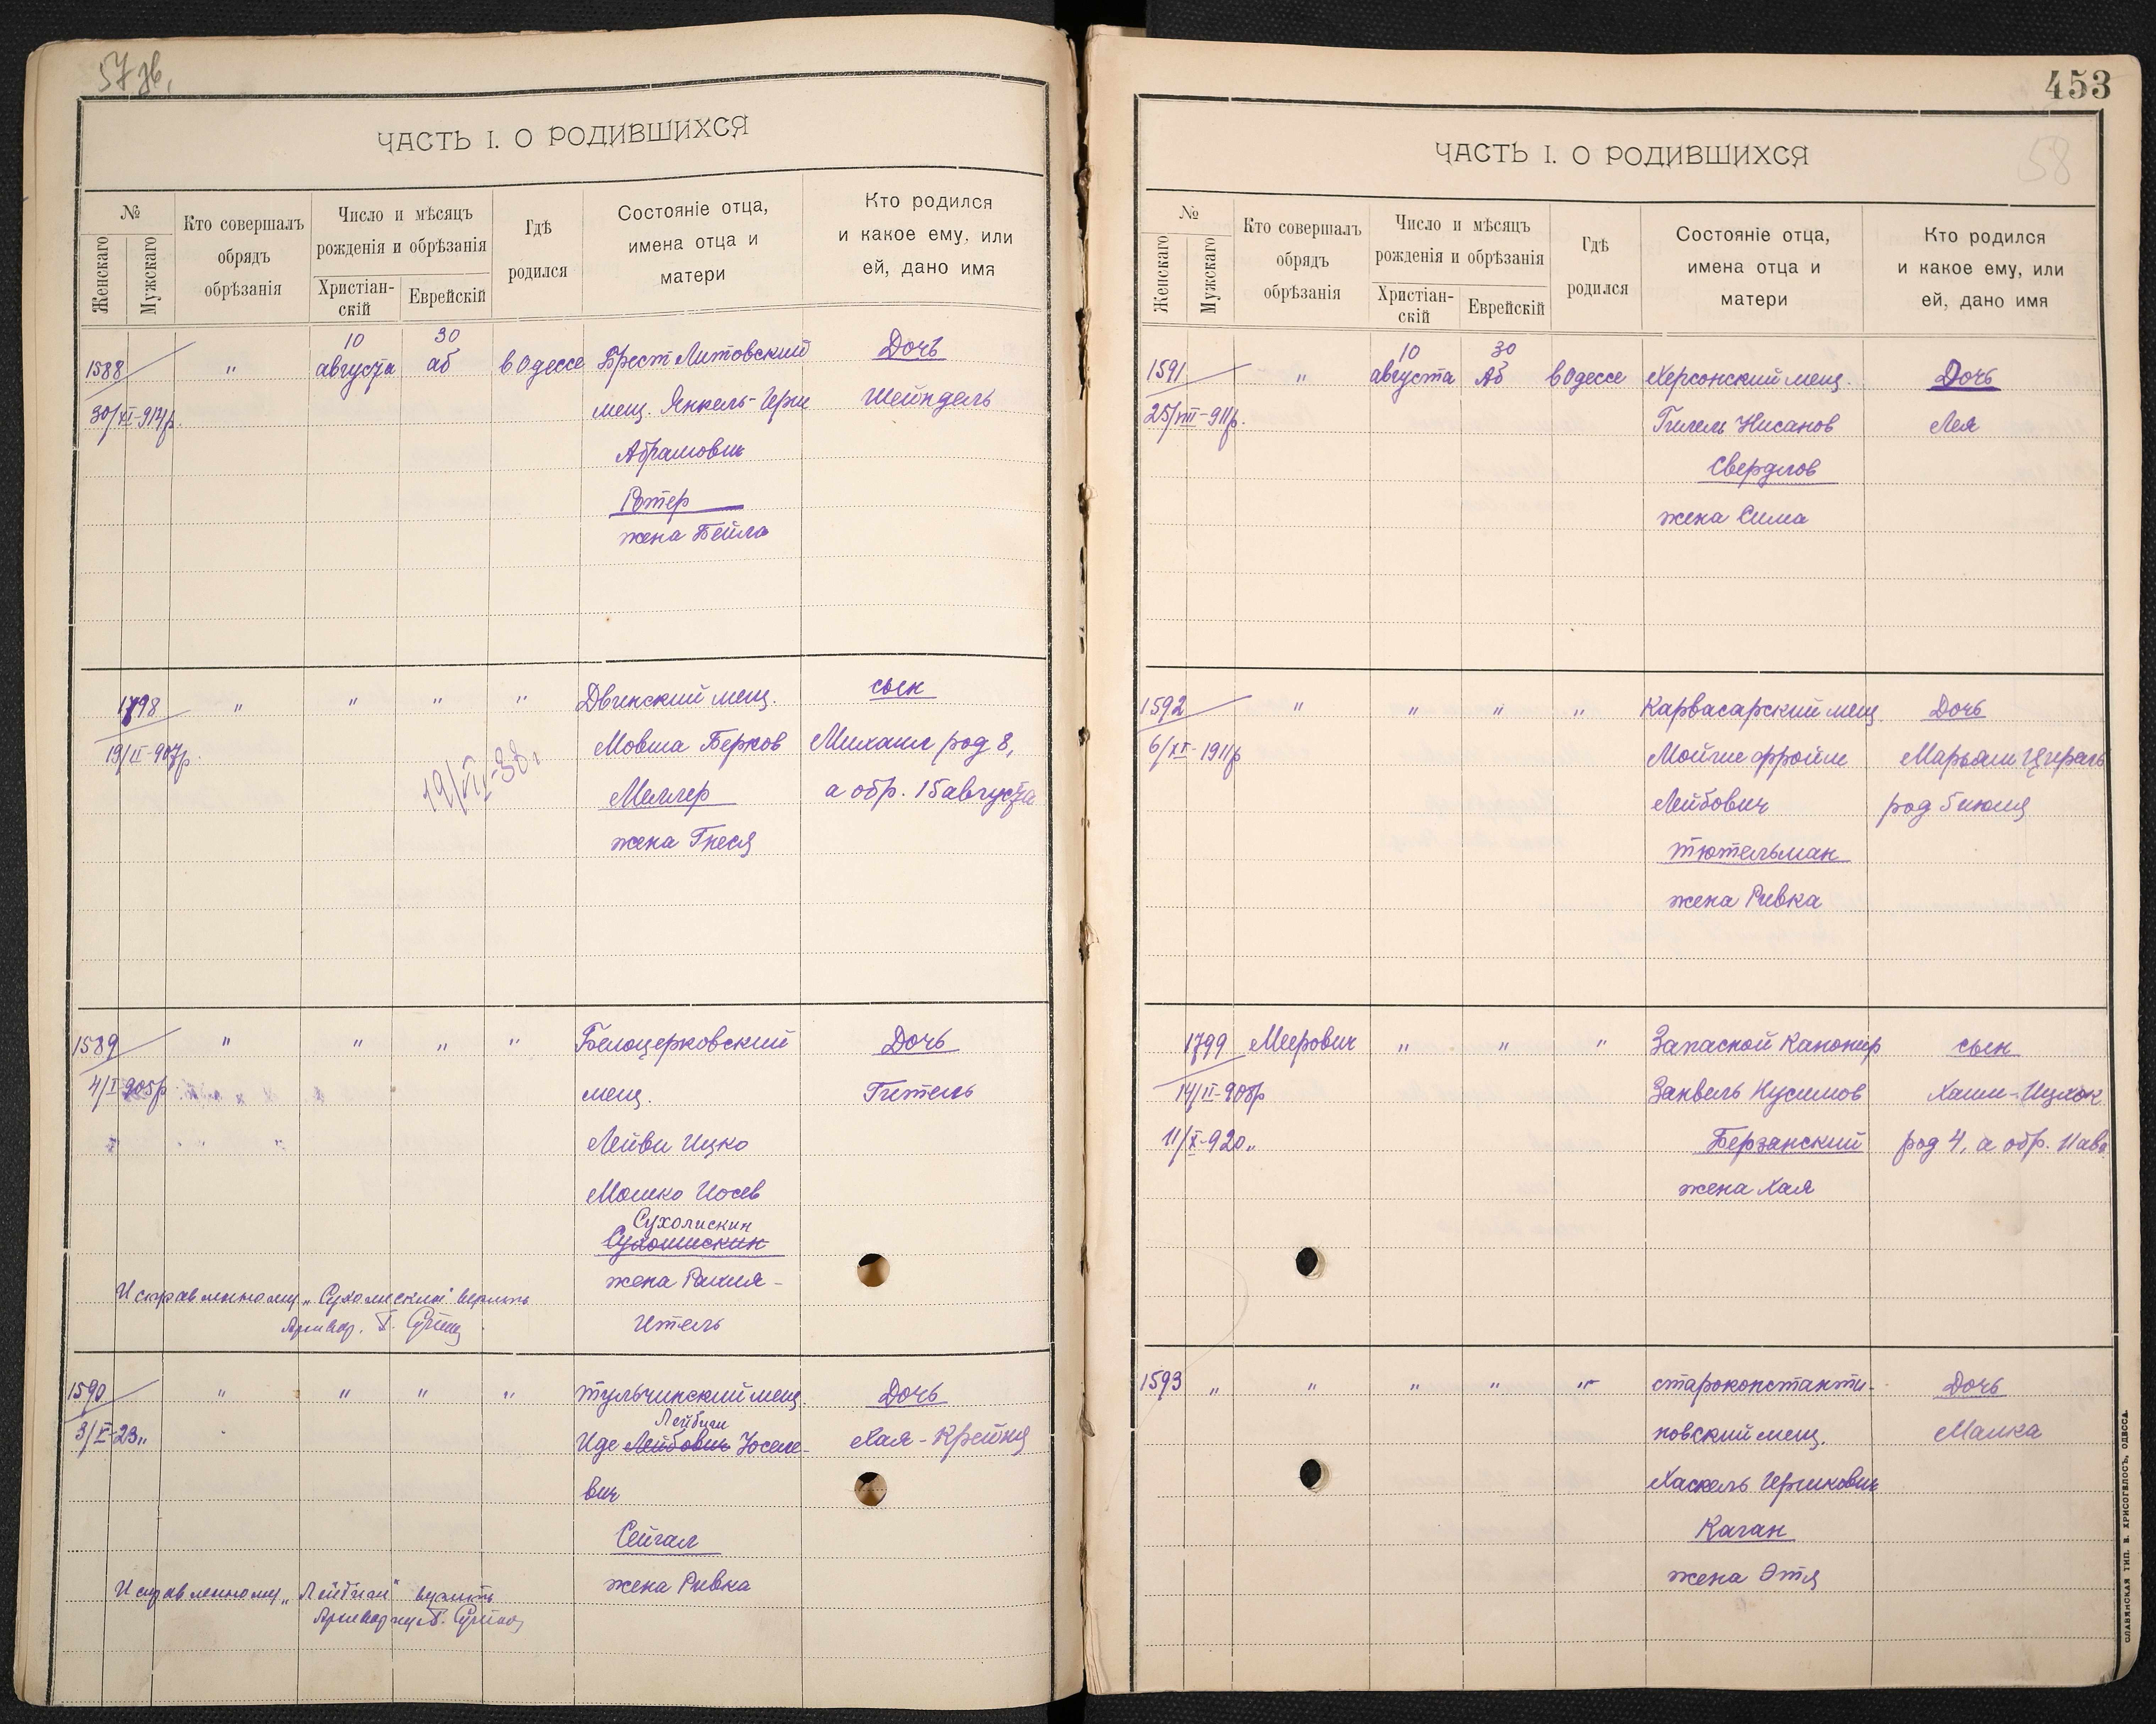 57 зв.
ЧАСТЬ I. О РОДИВШИХСЯ
№
Женскаго
Мужскаго
Кто совершалъ
обрядъ
обрѣзанія
Число и мѣсяцъ
рожденія и обрѣзанія
Христіан-
скій
Еврейскій
Гдѣ
родился
Состояніе отца,
имена отца и
матери
Кто родился
и какое ему, или
ей, дано имя
1588 " 10 августа 30 аб в Одессе Брест Литовский Дочь
мещ. Янкель-Герш Шейндель
Абрамович
Ротер
жена Бейла
1798 " " " " Двинский мещ. сын
19/II-907р. Мовша Берков Михаил род 8,
19/VII-38 г Меллер а обр. 15 августа
жена Гнеся
1589 " " " " Белоцерковский Дочь
4/I 905р мещ. Гитель
Лейви Ицко
Мошко Иосев
Сухолискин
жена Рахиля-
Итель
Исправленному "Сухолискин" верить
1590 " " " " тульчинский мещ. Дочь
Лейбиш
3/V-23 " Иде Лейбович Иоселе- Хая-Крейня
вич
Сейгал
жена Ривка
Исправленному "Лейбиш" верить
453
58
ЧАСТЬ I. О РОДИВШИХСЯ
№
Женскаго
Мужскаго
Кто совершалъ
обрядъ
обрѣзанія
Число и мѣсяцъ
рожденія и обрѣзанія
Христіан-
скій
Еврейскій
Гдѣ
родился
Состояніе отца,
имена отца и
матери
Кто родился
и какое ему, или
ей, дано имя
1591 " 10 августа 30 Аб в Одессе Херсонский мещ. Дочь
25/VIII-911р. Гилель Нисанов Лея
Свердлов
жена Сима
1592 " " " " Карвасарский мещ. Дочь
6/XI-1911р Мойше Фройм Марьям
Лейбович род 5 июля
тютельман
жена Ривка
1799 Меерович " " " Запасной Канонир сын
14/II-908р Занвель Нусимов Хаим-Ицхок
11/X-920 " Берзанский род 4, а обр. 11 авг.
жена Хая
1593 " " " " " староконстанти- Дочь
новский мещ. Малка
Хаскель Гершкович
Каган
жена Этя
СЛАВЯНСКАЯ ТИП. Н. ХРИСОГЕЛОСЪ, ОДЕССА.